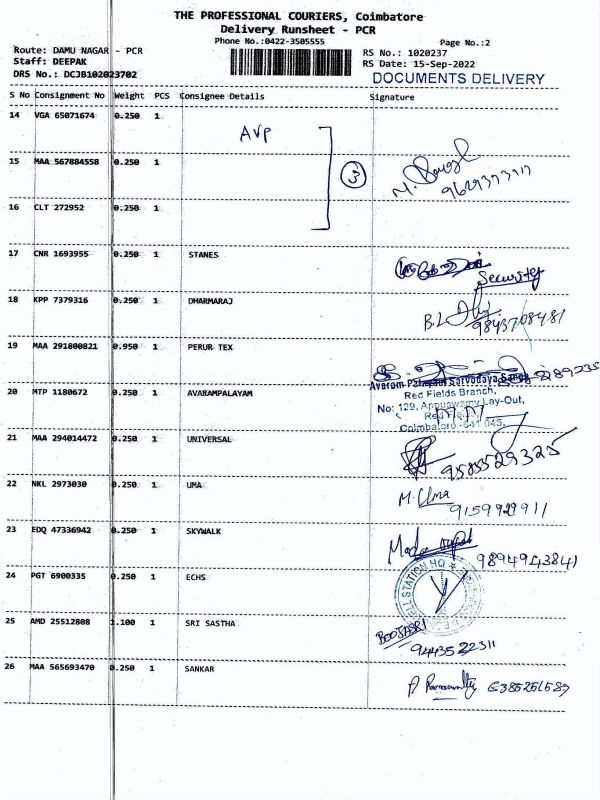 THE PROFESSIONAL COURIERS, Coimbatore
Delivery Runsheet - PCR
Phone No.:0422-3505555
Page No.:2
Route: DAMU NAGAR - PCR
RS No.: 1020237
Staff: DEEPAK
RS Date: 15-Sep-2022
DRS No.: DCJB102023702
DOCUMENTS DELIVERY
S No Consignment No Weight PCS Consignee Details Signature
14 VGA 65071674 0.250 1
AVP
15 MAA 567884558 0.250 1
3
M.
16 CLT 272952 0.250 1
17 CNR 1693955 0.250 1 STANES
Security
18 KPP 7379316 0.250 1 DHARMARAJ
B.L
9843708481
19 MAA 291800821 0.950 1 PERUR TEX
289235
Sarvodaya Sangh
20 MTP 1180672 0.250 1 AVARAMPALAYAM
Red Fields Branch,
No: 129, Appuswamy Lay-Out,
Coimbatore - 641 045.
21 MAA 294014472 0.250 1 UNIVERSAL
9585529325
22 NKL 2973030 0.250 1 UMA
M. Uma
9159929911
23 EDQ 47336942 0.250 1 SKYWALK
9894943841
24 PGT 6900335 0.250 1 ECHS
STATION HQ
25 AMD 25512808 1.100 1 SRI SASTHA
9443522311
26 MAA 565693470 0.250 1 SANKAR
6385251587